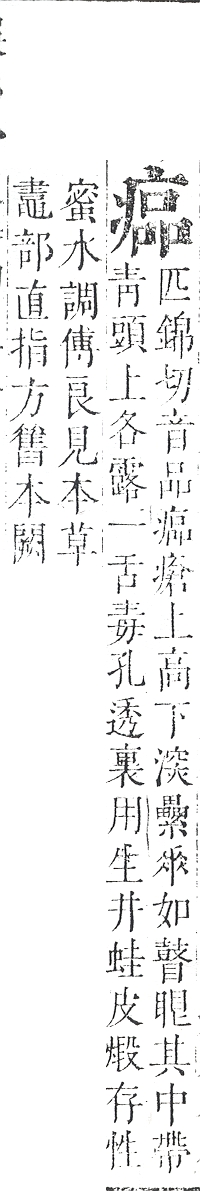 ⿸疒品
匹錦切音品⿸疒品瘡上高下深纍垂如瞽眼其中帶
青頭上各露一舌毒孔透裏用生井蛙皮煅存性
蜜水調傅良見本草
鼃部直指方舊本闕